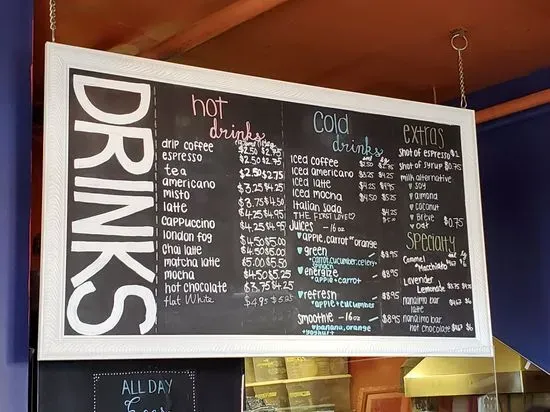 DRINKS
hot
drinks
drip coffee $2.50 $2.75
espresso $2.50 $2.75
tea $2.50 $2.75
americano $3.25 $4.25
misto $3.75 $4.50
latte $4.25 $4.95
cappuccino $4.25 $4.95
london fog $4.50 $5.00
chai latte $4.50 $5.00
matcha latte $5.00 $5.50
mocha $4.50 $5.25
hot chocolate $3.75 $4.25
flat White $4.95 $5.25
cold
drinks
sm lg
Iced coffee $2.50 $2.75
Iced americano $3.25 $4.25
Iced latte $4.25 $4.95
Iced mocha $4.50 $5.25
Italian soda $4.25
THE FIRST LOVE♡ $5.00
Juices - 16oz
♥ apple, carrot orange
♥ green $8.95
carrot, cucumber, celery
spinach
♥ energize $8.95
apple + carrot
♥ refresh $8.95
apple + cucumber
smoothie - 16oz $8.95
banana, orange
+ yoghurt
extras
Shot of espresso $1
Shot of syrup $0.75
milk alternative
♥ soy
♥ almond
♥ coconut
♥ Breve
♥ oat $0.75
Specialty
Caramel
Macchiato
Lavender
Lemonade
nanaimo bar
latte
nanaimo bar
hot chocolate
ALL DAY